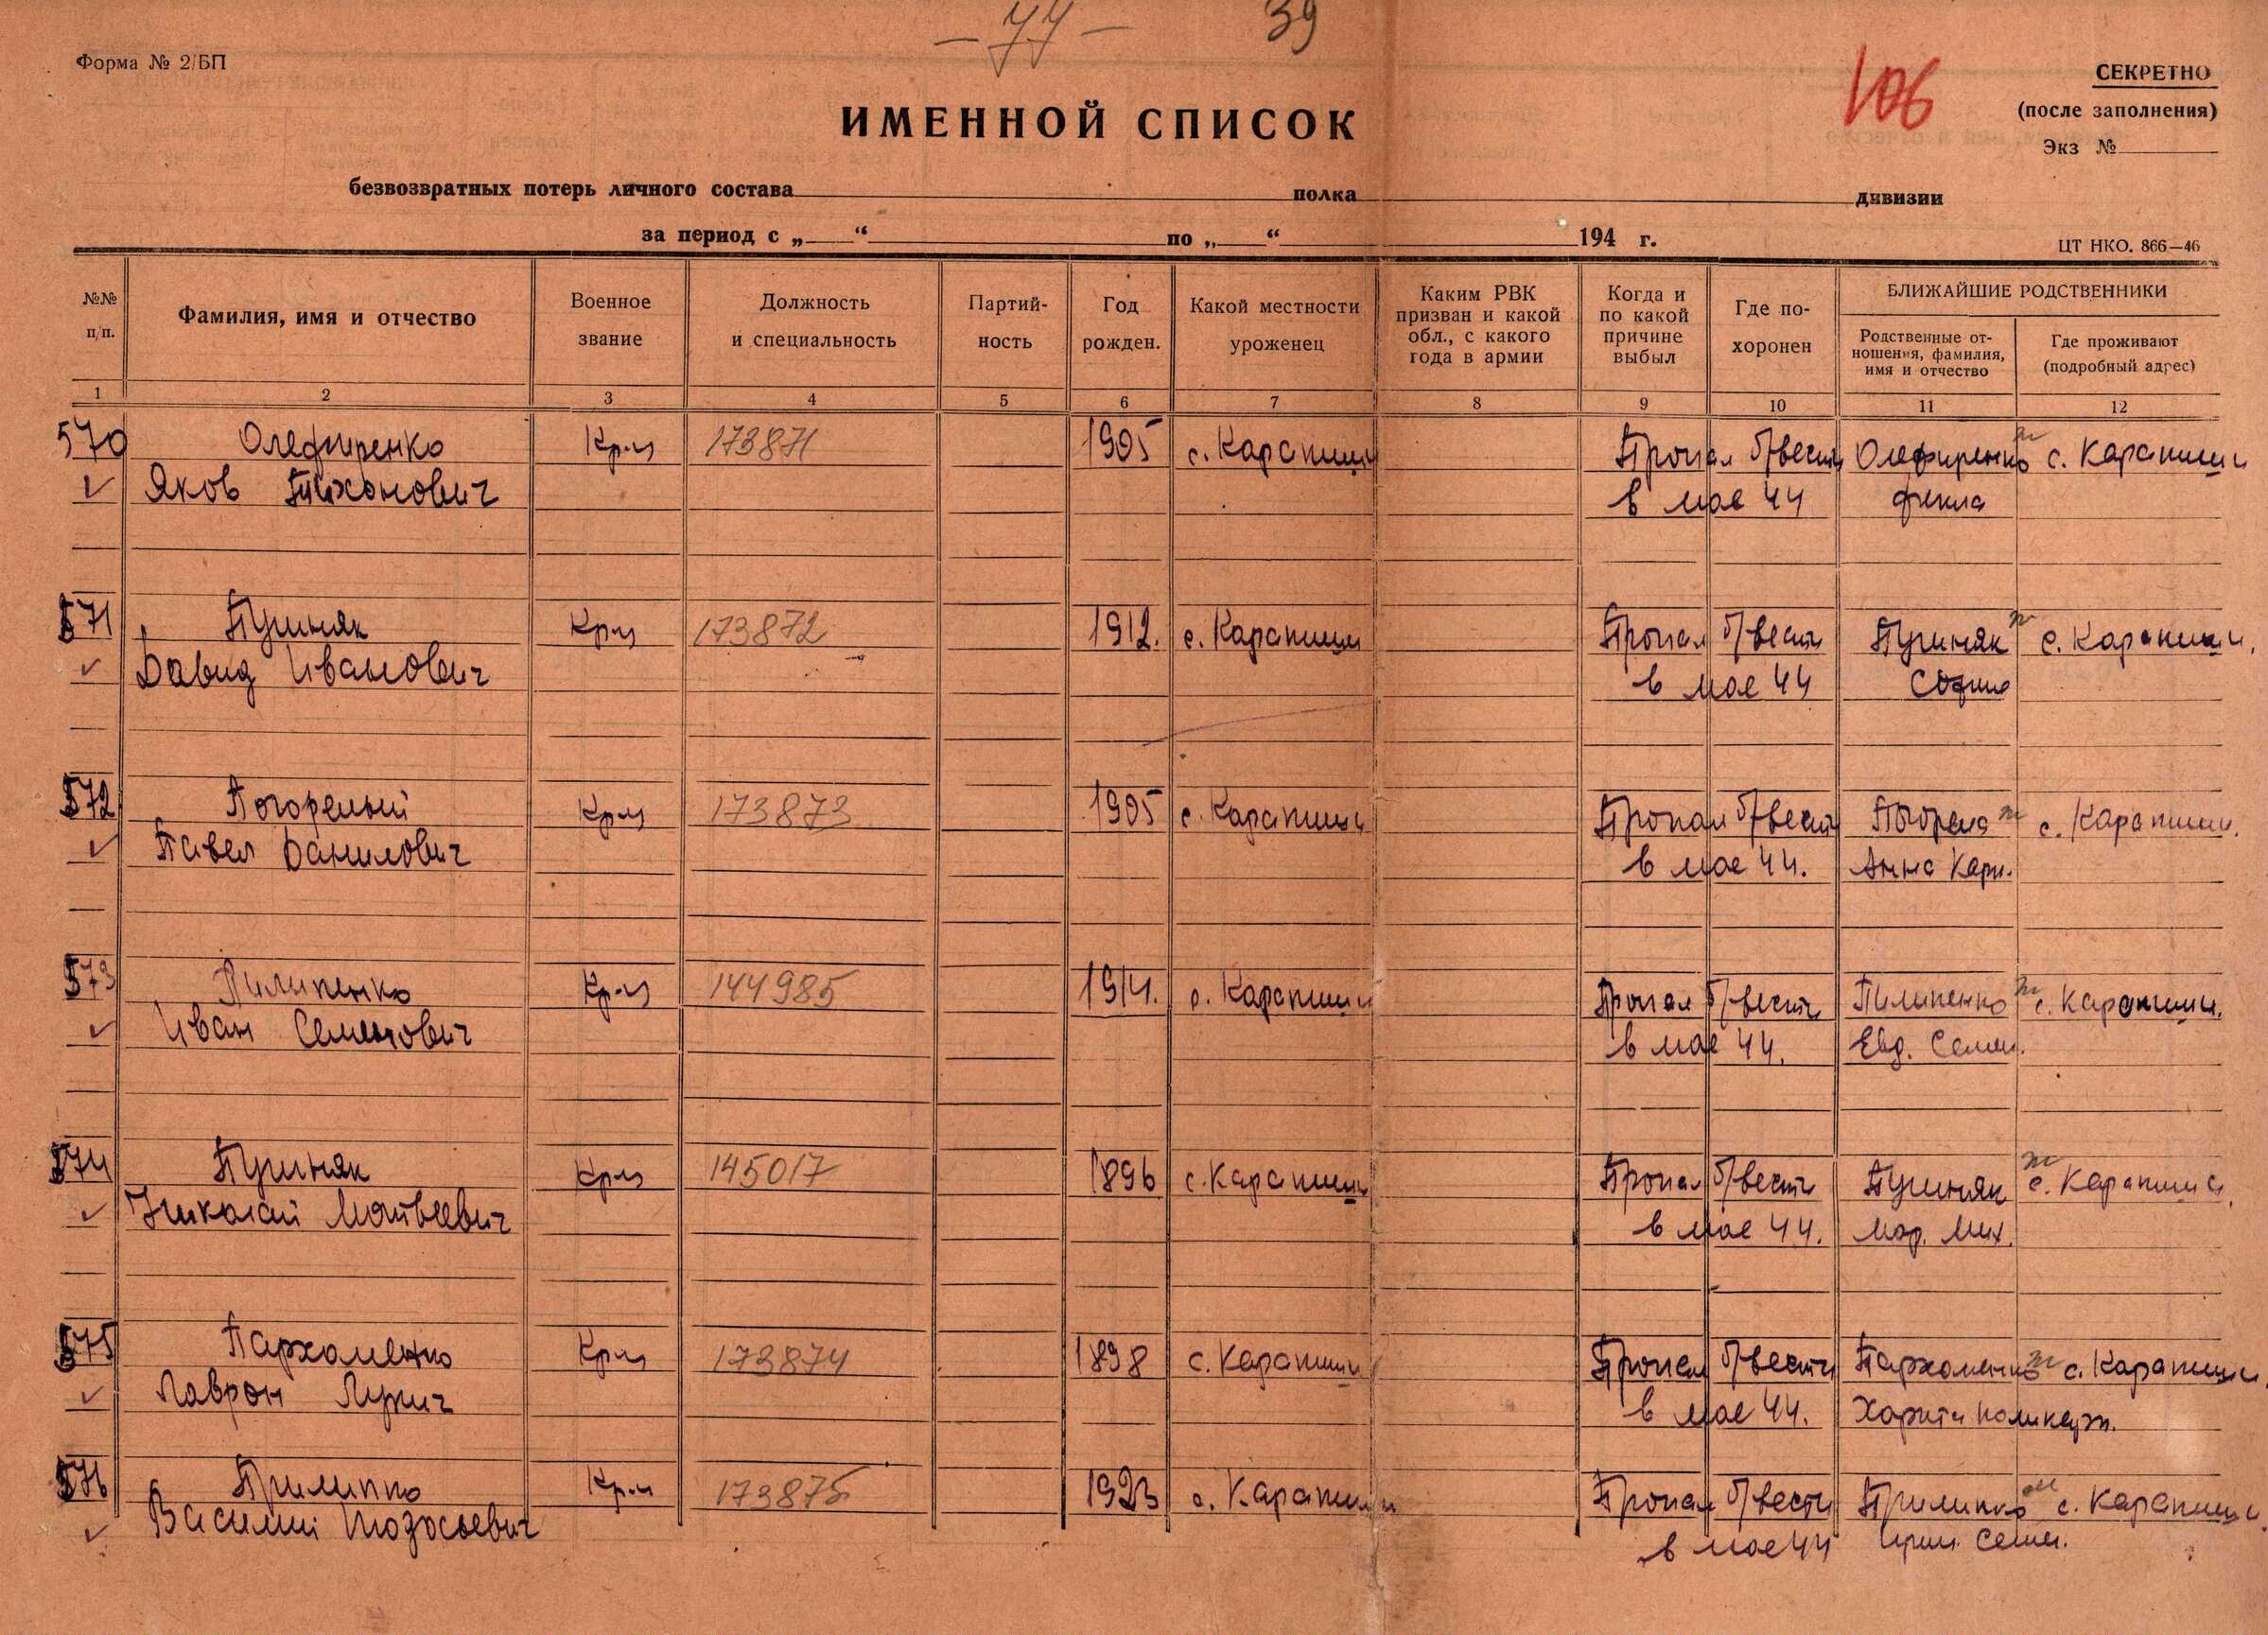 - 77 - 39
Форма № 2/БП
106
СЕКРЕТНО
(после заполнения)
Экз №
ИМЕННОЙ СПИСОК
безвозвратных потерь личного состава полка дивизии
за период с „ “ по „ “ 194 г.
ЦТ НКО. 866—46
№№ п/п. Фамилия, имя и отчество Военное звание Должность и специальность Партий-ность Год рожден. Какой местности уроженец Каким РВК призван и какой обл., с какого года в армии Когда и по какой причине выбыл Где по-хоронен БЛИЖАЙШИЕ РОДСТВЕННИКИ
Родственные от-ношения, фамилия, имя и отчество Где проживают (подробный адрес)
1 2 3 4 5 6 7 8 9 10 11 12
570 Олефиренко Кр-ц 173871 1905 с. Карапиши Пропал б/вести Олефиренко ж с. Карапиши
Яков Тихонович в мае 44 Фекла
571 Пушняк Кр-ц 173872 1912. с. Карапиши Пропал б/вести Пушняк ж с. Карапиши.
Давид Иванович в мае 44 София
572 Погорелый Кр-ц 173873 1905 с. Карапиши Пропал б/вести ж с. Карапиши.
Павел Данилович в мае 44. Анна Карп.
573 Пилипенко Кр-ц 144985 1914. с. Карапиши Пропал б/вести Пилипенко ж с. Карапиши.
Иван Семенович в мае 44. Евд. Семен.
574 Пушняк Кр-ц 145017 1896 с. Карапиши Пропал б/вести Пушняк ж с. Карапиши.
Николай Матвеевич в мае 44. Мар. Мих.
575 Пархоменко Кр-ц 173874 1898 с. Карапиши Пропал б/вести Пархоменко ж с. Карапиши.
Лаврон Лукич в мае 44. Харита Поликарп.
576 Прилипко Кр-ц 173875 1923 с. Карапиши Пропал б/вести Прилипко м с. Карапиши.
Василий в мае 44 Семен.